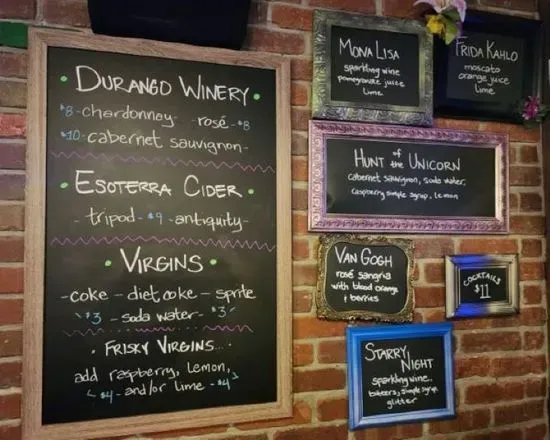 • DURANGO WINERY •
$8 - chardonnay - rosé - $8
$10 - cabernet sauvignon -
• ESOTERRA CIDER •
- tripod - $9 - antiquity -
• VIRGINS •
- coke - diet coke - sprite
$3 - soda water - $3
• FRISKY VIRGINS...
add raspberry, lemon,
$4 - and/or lime - $4
MONA LISA
sparkling wine
pomegranate juice
lime
FRIDA KAHLO
moscato
orange juice
lime
HUNT of the UNICORN
cabernet sauvignon, soda water,
raspberry simple syrup, lemon
VAN GOGH
rosé sangria
with blood orange
& berries
COCKTAILS
$11
STARRY
NIGHT
sparkling wine,
bitters, simple syrup
glitter